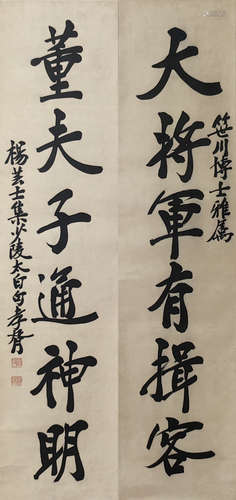 大將軍有揖客
笹川博士雅屬
董夫子通神明
楊芸士集少陵太白句孝胥